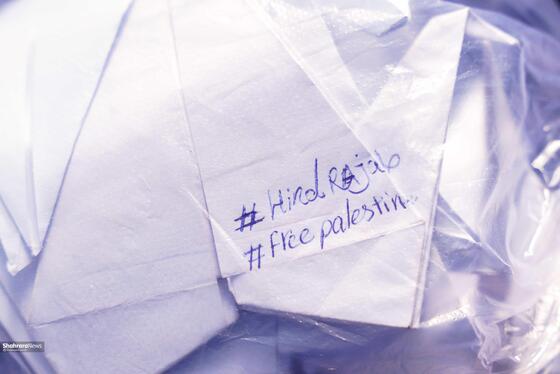 # Hind Rajab
# Free palestine
ShahraraNews